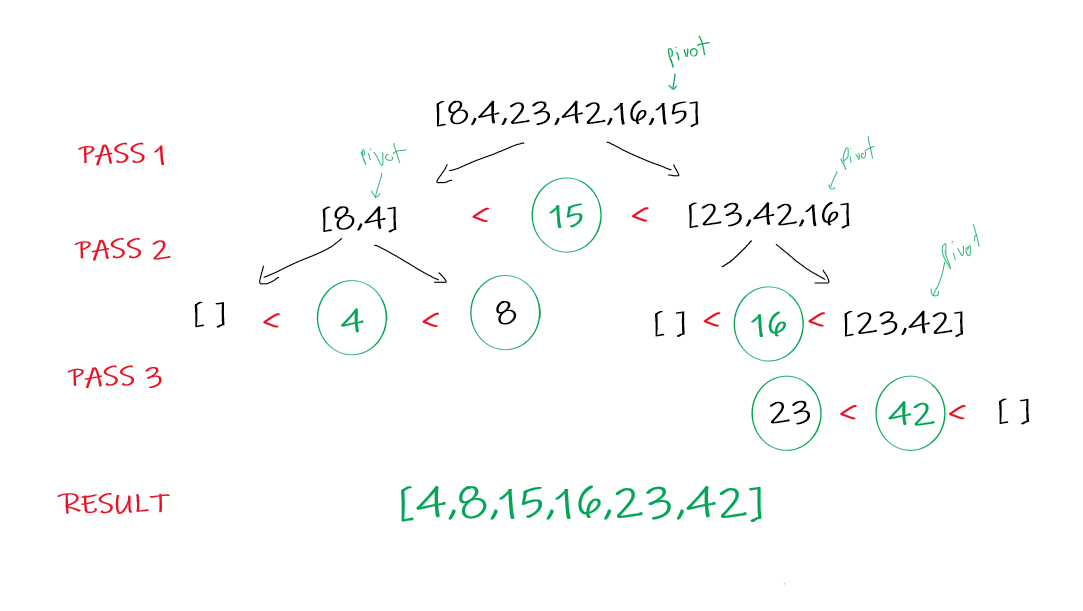 pivot
[8,4,23,42,16,15]
PASS 1
pivot
pivot
[8,4] < 15 < [23,42,16]
PASS 2
pivot
[ ] < 4 < 8
[ ] < 16 < [23,42]
PASS 3
23 < 42 < [ ]
RESULT [4,8,15,16,23,42]